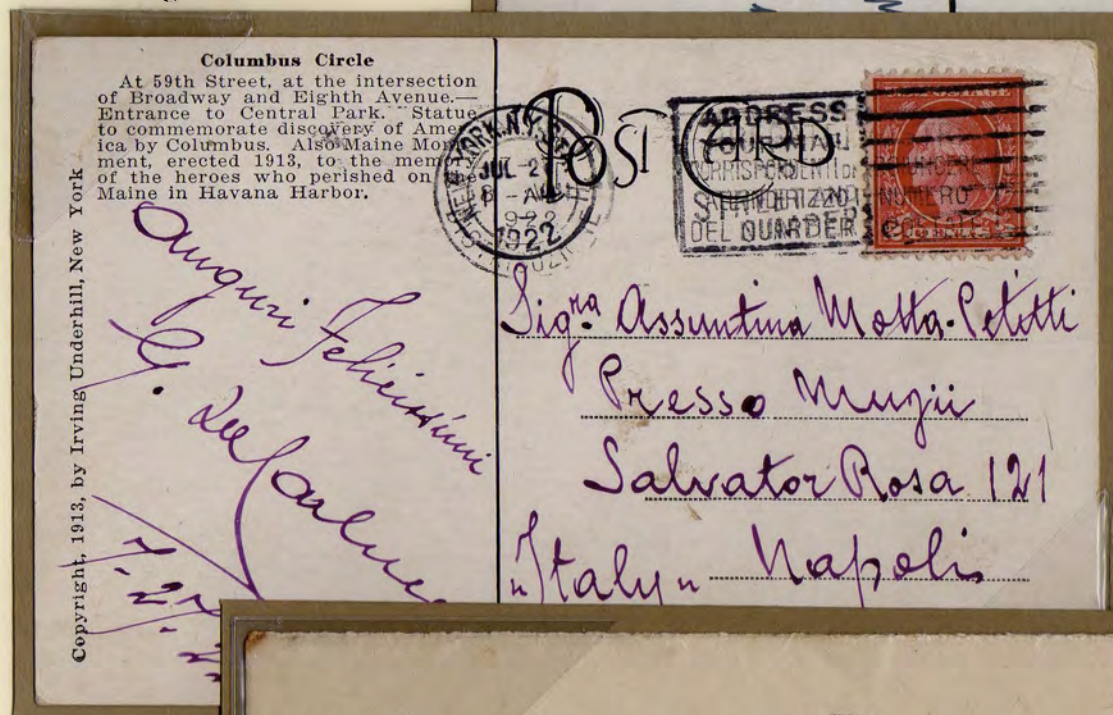 Columbus Circle
At 59th Street, at the intersection
of Broadway and Eighth Avenue.—
Entrance to Central Park. Statue
to commemorate discovery of Amer-
ica by Columbus. Also Maine Monu-
ment, erected 1913, to the memory
of the heroes who perished on the
Maine in Havana Harbor.
Copyright, 1913, by Irving Underhill, New York
Auguri Felicissimi
G.
7-27-
POST CARD
NEW YORK, N.Y.
JUL 2
1922
ADDRESS
YOUR MAIL
CORRISPONDENTI
INDIRIZZO
NUMERO
DEL QUARTIER
POSTAGE
CENTS
Sigra Assuntina Motta-Petitti
Presso Muzii
Salvator Rosa 121
"Italy" Napoli